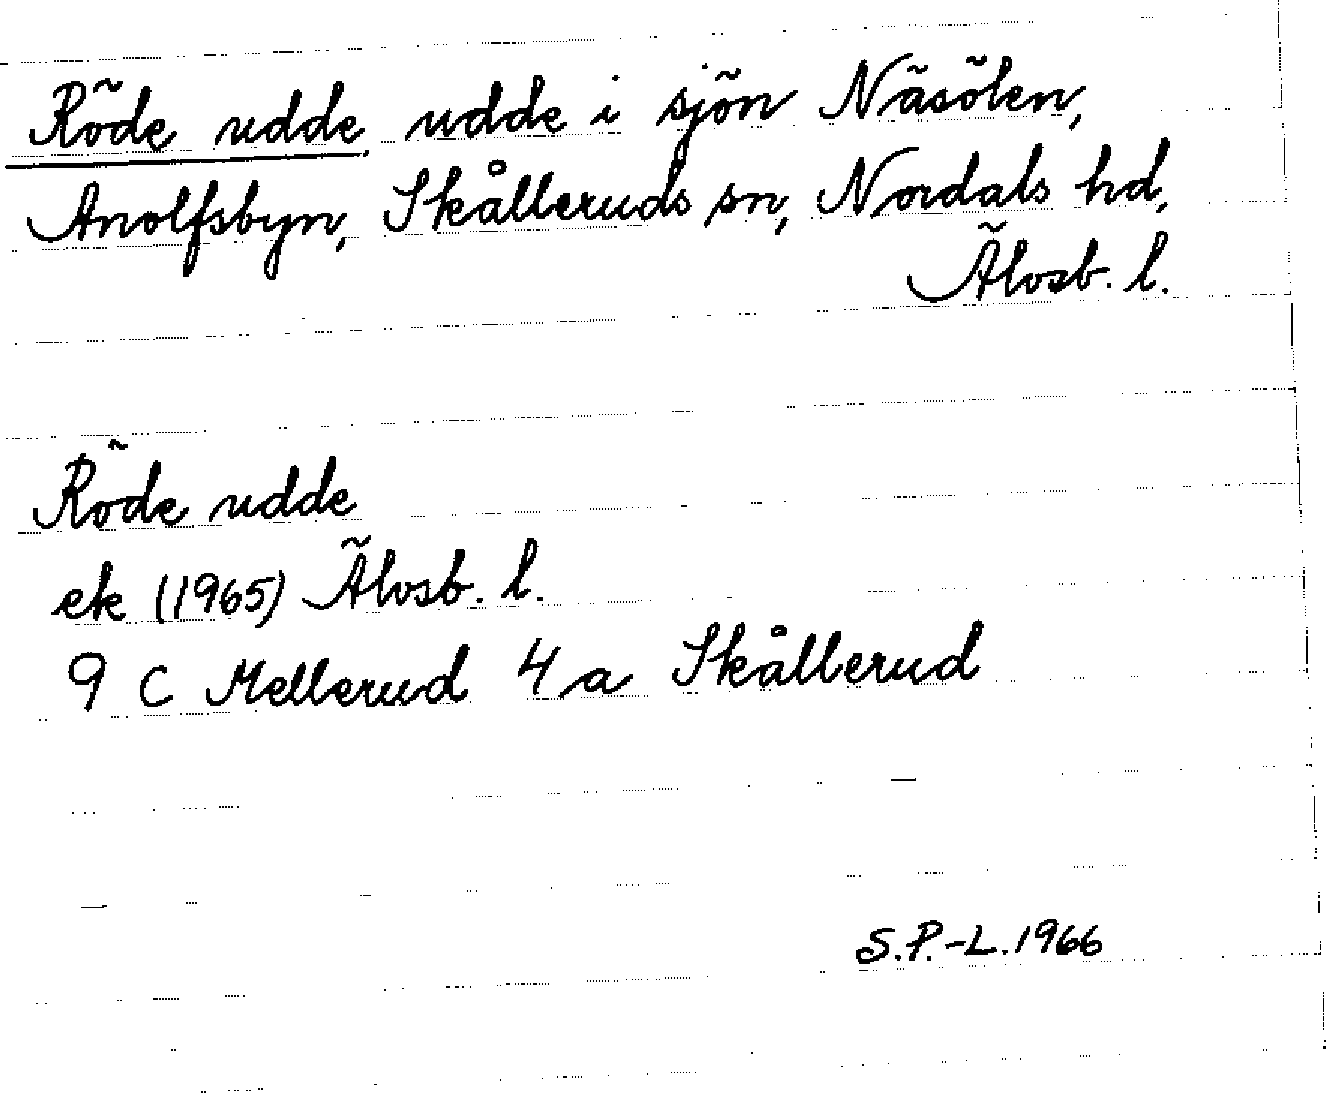 Röde udde udde i sjön Näsölen,
Anolfsbyn, Skålleruds sn, Nordals hd,
Älvsb. l.
Röde udde
ek (1965) Älvsb. l.
9 C Mellerud 4 a Skållerud
S.P.-L. 1966